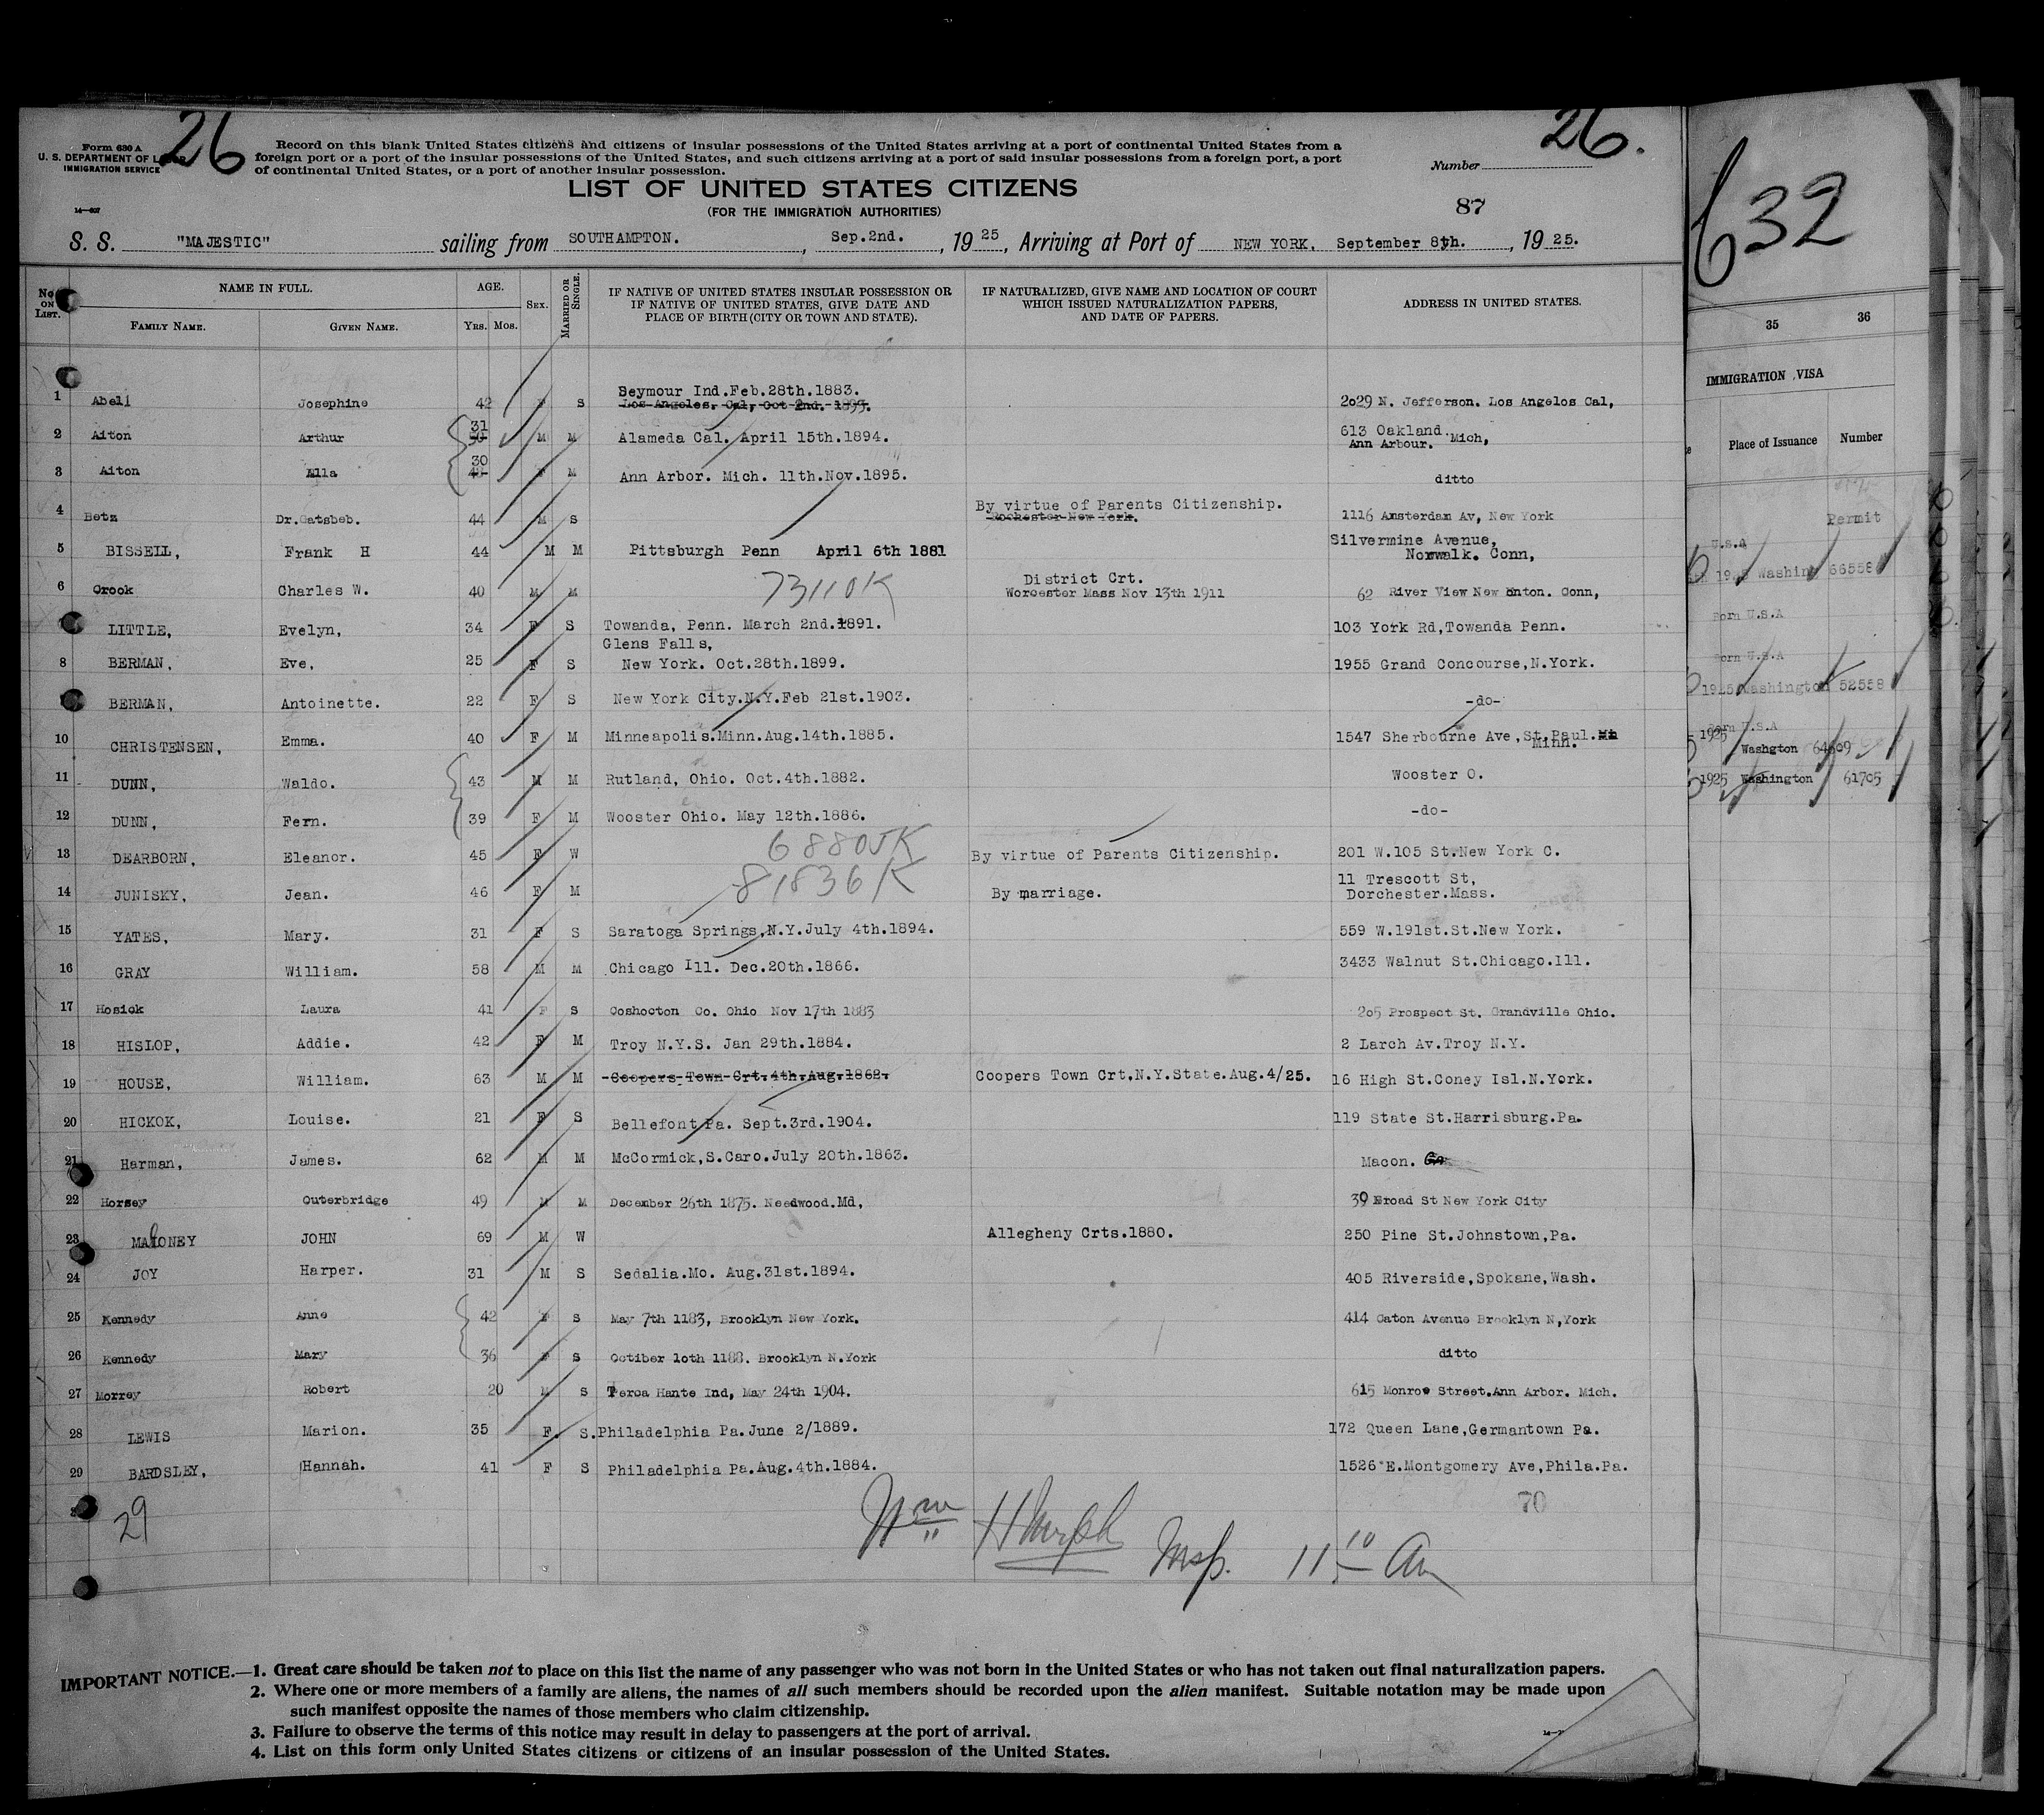 26 26.
Form 630 A
U. S. DEPARTMENT OF L
IMMIGRATION SERVICE
Record on this blank United States citizens and citizens of insular possessions of the United States arriving at a port of continental United States from a
foreign port or a port of the insular possessions of the United States, and such citizens arriving at a port of said insular possessions from a foreign port, a port
of continental United States, or a port of another insular possession.
Number
LIST OF UNITED STATES CITIZENS
(FOR THE IMMIGRATION AUTHORITIES)
87
S. S. "MAJESTIC" sailing from SOUTHAMPTON. , Sep.2nd. , 19 25 , Arriving at Port of NEW YORK, September 8th. , 19 25.
No. ON LIST. NAME IN FULL. FAMILY NAME. GIVEN NAME. AGE. YRS. MOS. SEX. MARRIED OR SINGLE. IF NATIVE OF UNITED STATES INSULAR POSSESSION OR IF NATIVE OF UNITED STATES, GIVE DATE AND PLACE OF BIRTH (CITY OR TOWN AND STATE). IF NATURALIZED, GIVE NAME AND LOCATION OF COURT WHICH ISSUED NATURALIZATION PAPERS, AND DATE OF PAPERS. ADDRESS IN UNITED STATES.
1 Abell Josephine 42 F S Seymour Ind.Feb.28th.1883. 2029 N. Jefferson. Los Angelos Cal,
Los Angeles. Cal, Oct 2nd. 1893.
2 Aiton Arthur 31 M M Alameda Cal. April 15th.1894. 613 Oakland. Ann Arbour. Mich,
3 Aiton Alla 30 F M Ann Arbor. Mich. 11th.Nov.1895. ditto
4 Betz Dr.Gatsbeb. 44 M S By virtue of Parents Citizenship. 1116 Amsterdam Av, New York
Rochester New York.
5 BISSELL, Frank H 44 M M Pittsburgh Penn April 6th 1881 Silvermine Avenue, Norwalk. Conn,
6 Crook Charles W. 40 M M 73110K District Crt. Worcester Mass Nov 13th 1911 62 River View New Bnton. Conn,
LITTLE, Evelyn, 34 F S Towanda, Penn. March 2nd.1891. 103 York Rd,Towanda Penn.
8 BERMAN, Eve, 25 F S Glens Falls, New York. Oct.28th.1899. 1955 Grand Concourse,N.York.
BERMAN, Antoinette. 22 F S New York City.N.Y.Feb 21st.1903. -do-
10 CHRISTENSEN, Emma. 40 F M Minneapolis.Minn.Aug.14th.1885. 1547 Sherbourne Ave,St.Paul. Minn.
11 DUNN, Waldo. 43 M M Rutland, Ohio. Oct.4th.1882. Wooster O.
12 DUNN, Fern. 39 F M Wooster Ohio. May 12th.1886. -do-
13 DEARBORN, Eleanor. 45 F W By virtue of Parents Citizenship. 201 W.105 St.New York C.
14 JUNISKY, Jean. 46 F M 81836K By marriage. 11 Trescott St, Dorchester.Mass.
15 YATES, Mary. 31 F S Saratoga Springs,N.Y.July 4th.1894. 559 W.191st.St.New York.
16 GRAY William. 58 M M Chicago Ill. Dec.20th.1866. 3433 Walnut St.Chicago.Ill.
17 Hosick Laura 41 F S Coshocton Co. Ohio Nov 17th 1883 205 Prospect St. Grandville Ohio.
18 HISLOP, Addie. 42 F M Troy N.Y.S. Jan 29th.1884. 2 Larch Av.Troy N.Y.
19 HOUSE, William. 63 M M Coopers Town Crt.4th.Aug.1862. Coopers Town Crt,N.Y.State.Aug.4/25. 16 High St.Coney Isl.N.York.
20 HICKOK, Louise. 21 F S Bellefont Pa. Sept.3rd.1904. 119 State St.Harrisburg.Pa.
21 Harman, James. 62 M M McCormick,S.Caro.July 20th.1863. Macon. Ga
22 Horsey Outerbridge 49 M M December 26th 1875. Needwood.Md, 39 Broad St New York City
23 MALONEY JOHN 69 M W Allegheny Crts.1880. 250 Pine St.Johnstown,Pa.
24 JOY Harper. 31 M S Sedalia.Mo. Aug.31st.1894. 405 Riverside,Spokane,Wash.
25 Kennedy Anne 42 F S May 7th 1183, Brooklyn New York. 414 Caton Avenue Brooklyn N,York
26 Kennedy Mary 36 F S Octiber 10th 1188. Brooklyn N.York ditto
27 Morrey Robert 20 M S Teroa Hante Ind, May 24th 1904. 615 Monroe Street.Ann Arbor. Mich.
28 LEWIS Marion. 35 F. S. Philadelphia Pa.June 2/1889. 172 Queen Lane,Germantown Pa.
29 BARDSLEY, Hannah. 41 F S Philadelphia Pa.Aug.4th.1884. 1526 E.Montgomery Ave,Phila.Pa.
29 70
Wm Insp. 11 10 Am
IMPORTANT NOTICE.—1. Great care should be taken not to place on this list the name of any passenger who was not born in the United States or who has not taken out final naturalization papers.
2. Where one or more members of a family are aliens, the names of all such members should be recorded upon the alien manifest. Suitable notation may be made upon
such manifest opposite the names of those members who claim citizenship.
3. Failure to observe the terms of this notice may result in delay to passengers at the port of arrival.
4. List on this form only United States citizens or citizens of an insular possession of the United States.
632
35 36
IMMIGRATION VISA
Place of Issuance Number
Permit
U.S.A
Washing 66558
Born U.S.A
Born U.S.A
1925 Washington 52558
Born U.S.A
1925 Washgton
1925 Washington 61705